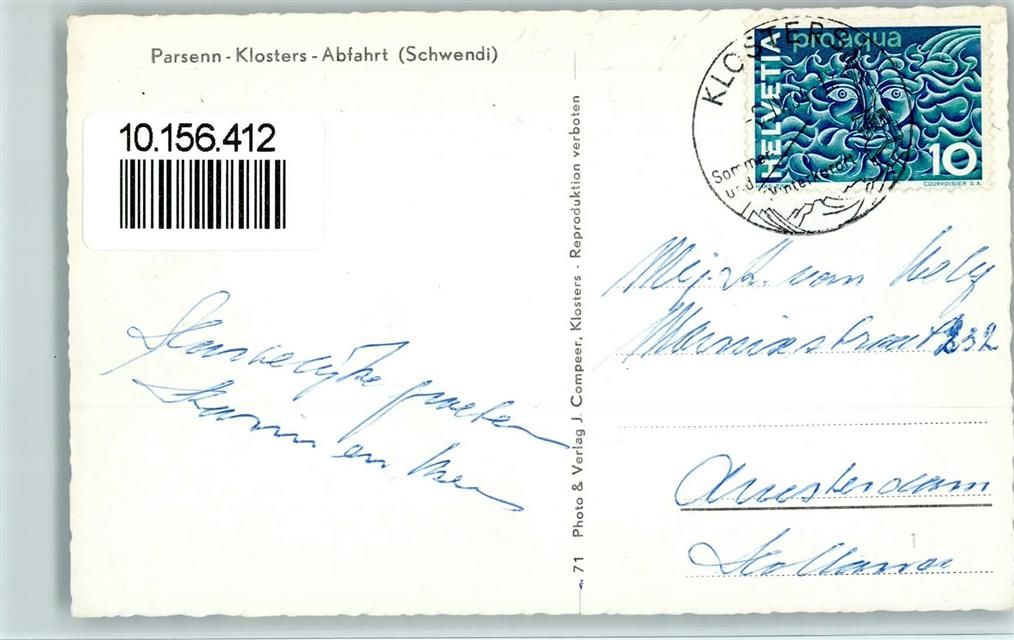 Parsenn - Klosters - Abfahrt (Schwendi)
10.156.412
Hartelijke groeten
en
71 Photo & Verlag J. Compeer, Klosters - Reproduktion verboten
KLOSTERS
Sommer
und Winterkurort
pro aqua
HELVETIA
10
COURVOISIER S.A.
Mej. van
Marnixstraat 232
Amsterdam
Holland